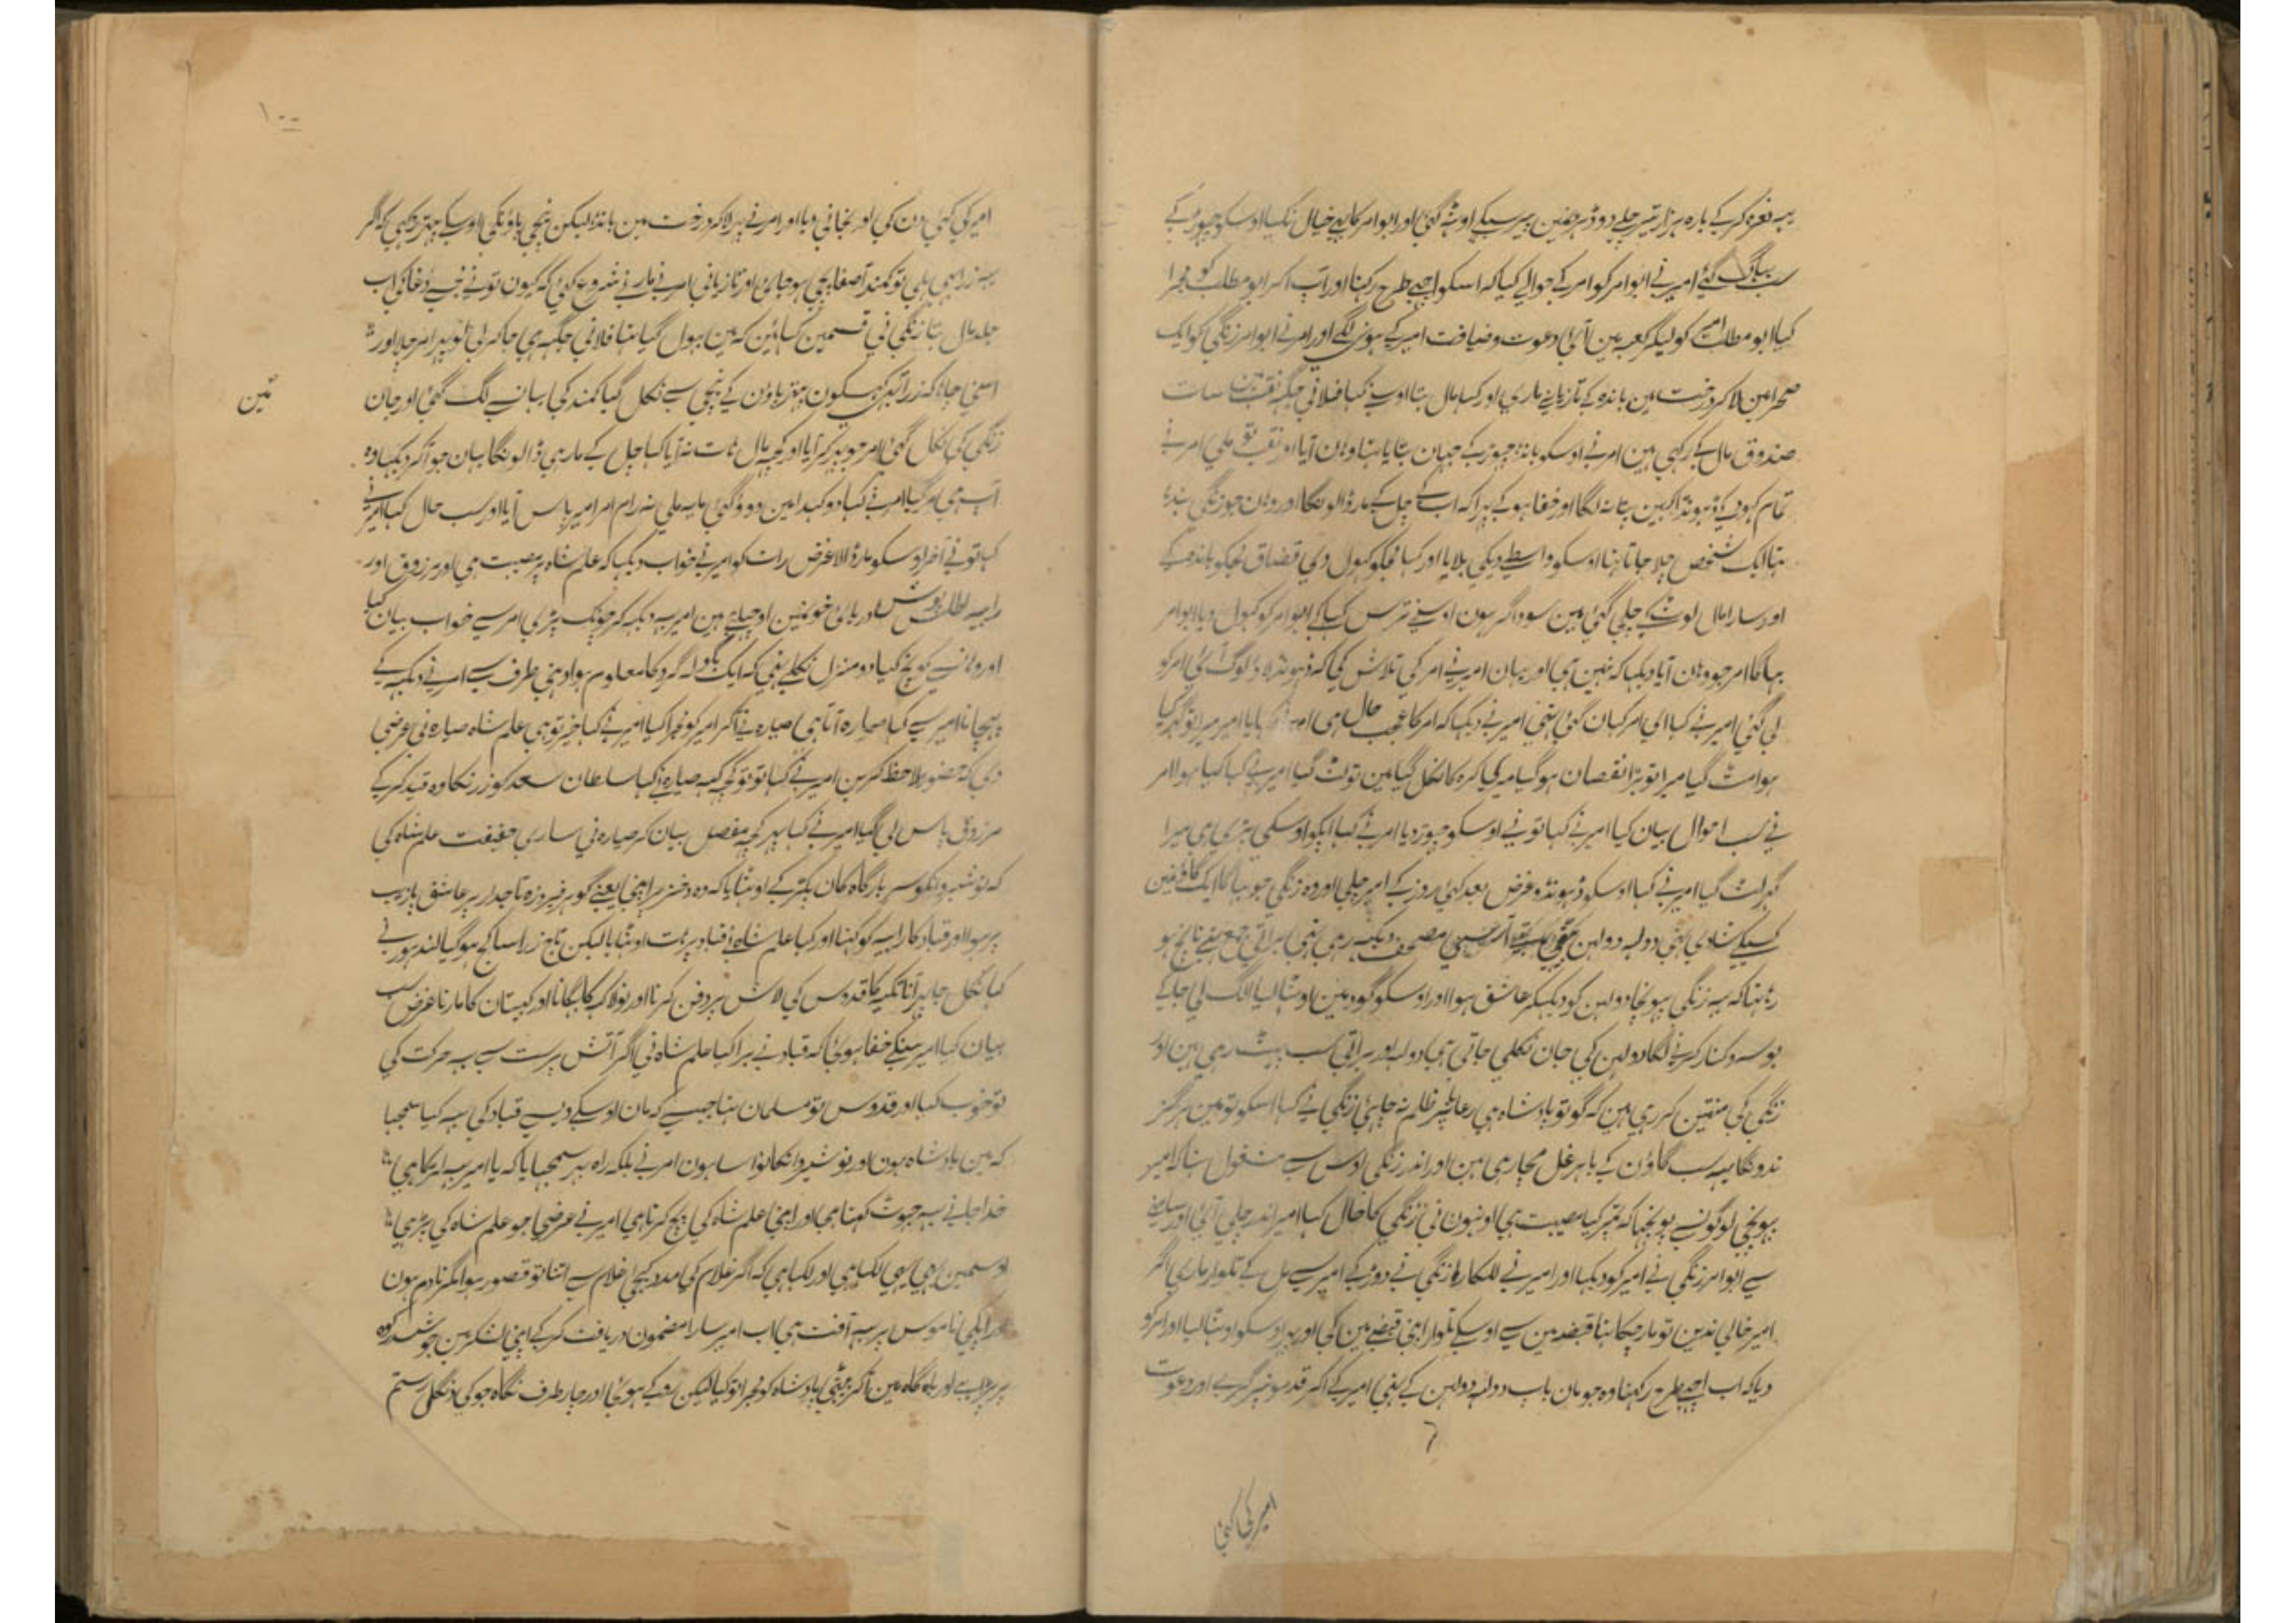 یہ نعرہ کرکے بارہ ہزار تیر چلے دو ڈہر صفین پیر سیکے اوٹہ گئی اور ابوامر کا یے خیال نکیا اوسکو چہوڑ کے
سب بہاگ گئے امیر نے ابوامر کو امر کے حوالے کیا کہ اسکو اچہے طرح رکہنا اور آپ اکر ابو مطلب کو مجرا
کیا ابو مطلب امیر کو لیکر کعبہ مین آئی دعوت و ضیافت امیر کے ہونی لگے اور امر نے ابوامر زنگی کو ایک
صحرا مین لاکر درخت مین باندہ کے تازیانے ماری اور کہا مال بتا اوسنے کہا فلانی جگہ نقب مین سات
صندوق مال کے رکہی ہین امر نے اوسکو باندہ چہوڑ کے جہان بتایا تہا وہان آیا اور نقب تو ملی امر نے
تمام کہود کے ڈہونڈا کہین پتا نہ لگا اور خفا ہو کے پہرا کہ اب کے چل کے مار ڈالونگا اور وہان جو زنگی بندہا
تہا ایک شخص چلا جاتا تہا اوسکو واسطے دیکی بلایا اور کہا مجکو کہول دی قضاق مجکو باندہ کے
اور سارا مال لوٹ کے چلی گئی مین سوداگر ہون اوسنے ترس کہا کے ابوامر کو کہول دیا ابوامر
بہاگا امر جو وہان آیا دیکہا کہ نہین ہی اور یہان امیر نے امر کی تلاش کی کہ ڈہونڈہ لاؤ لوگ آئی امر کو
لی گئی امیر نے کہا ای امر کہان گئی تہی امیر نے دیکہا کہ امر کا عجب حال ہی امر نے کہا یا امیر میرا تو گہر کیا
ہوا مٹ گیا میرا تو بڑا نقصان ہو گیا میری گرہ کا نکل گیا مین تو لٹ گیا امیر نے کہا کیا ہوا امر
نے سب احوال بیان کیا امیر نے کہا تو نے اوسکو چہوڑ دیا امر نے کہا آپکو اوسکی پڑی ہی میرا
گہر لٹ گیا امیر نے کہا اوسکو ڈہونڈو غرض بعد کئی روز کے امیر چلی اور وہ زنگی جو بہاگا ایک گاؤن مین
کسیکی شادی تہی دولہ دولہن آرسی مصحف دیکہہ رہی تہی براتی جمع تہے ناچ ہو
رہا تہا کہ یہ زنگی پہونچا دولہن کو دیکہکر عاشق ہوا اور اوسکو گود مین اوٹہا لیا الگ لی جا کے
بوسہ و کنار کرنے لگا دولہن کی جان نکلی جاتی ہی دولہ اور براتی سب پیٹ رہی ہین اور
زنگی کی منتین کر رہی ہین کہ گو تو بادشاہ ہی رعایا پر ظلم نہ چاہئی زنگی نے کہا اسکو تو مین ہرگز
ندونگا یہہ سب گاؤن کے باہر غل مچا رہی ہین اور اندر زنگی اوس سے مشغول تہا کہ امیر
پہونچی لوگون سے پوچہا کہ تمپر کیا مصیبت ہی اونہون نی زنگی کا حال کہا امیر اندر چلی آئی اور سامنے
سے ابوامر زنگی نے امیر کو دیکہا اور امیر نے للکارا زنگی نے دوڑ کے امیر سے مل کے تلوار ماری اگر
امیر خالی ندین تو مار چکا تہا قبضہ مین سے اوسکے تلوار اپنی قبضے مین کی اور پہر اوسکو اوٹہا لیا اور امر کو
دیا کہ اب اچہے طرح رکہنا وہ جو مان باپ دولہ دولہن کے تہی امیر کے اکر قدمونپر گرے اور دعوت
امیر کی کئی
۱۰۰
امیر کی کئی دن کی اور بخانی دیا اور امر نے پہر لاکر درخت مین باندہا لیکن نیچی پاؤنکی اوسکے پتہر رکہی کہ اگر
یہ ذرا بہی ہلی تو کمند آصفا پہی ہو جائی اور تازیانی امر نے مارنے شروع کئی کہ کیون تو نے مجسے دغا کی اب
جلد مال بتا زنگی نی قسمین کہائین کہ مین بہول گیا تہا فلانی جگہہ ہی جا کر لی لو پہر امر چلا اور
اسنی چاہا کہ ذرا تہمسکون پتہر پاؤن کے نیچی سے نکل گیا کمند کی پہانسے لگ گئی اور جان
مین
زنگی کی نکل گئی امر جو پہر کر آیا اور کچہ مال ہات نہ آیا کہا چل کے مار ہی ڈالونگا یہان جو آکر دیکہا وہ
آپ ہی مر گیا امر نے کہا دوکہدا مین دوو گئی مایہ ملی نہ رام امر امیر پاس آیا اور سب حال کہا امیر نے
کہا تو نے آخر اوسکو مار ڈالا غرض رات کو امیر نے خواب دیکہا کہ علم شاہ پر مصیبت ہی اور مرزوق اور
رابیہ اطلس پوش دریائی خونمین اوچہلے ہین امیر یہ دیکہہ کر چونک پڑی امر سے خواب بیان کیا
اور وہانسے کوچ کیا دو منزل نکلے تہی کہ ایک بگولہ گرد کا معلوم ہوا دہنی طرف سے امر نے دیکہہ کے
پہچانا امیر سے کہا صبارہ آتا ہی صبارہ نے آکر امیر کو مجرا کیا امیر نے کہا خیر تو ہی علم شاہ صبارہ نی عرضی
دی کہ حضور ملاحظہ کرین امیر نے کہا تو تو کچہ کہہ صبارہ نے کہا سلطان سعد کو زرنکاوہ قید کر کے
مرزوق پاس لی گیا امیر نے کہا پہر کچہ مفصل بیان کر صبارہ نی ساری حقیقت علم شاہ کی
کہ نوشیروانکو سر بارگاہ کان پکڑ کے اوٹہایا کہ وہ دختر پر اپنی یعنے گوہر فیروزہ تاجدار پر عاشق یا رب
پر ہوا اور قباد کا رابیہ کو کہنا اور کیا علم شاہ نے قباد پر ہات اوٹہایا لیکن تاج ذرا سا کج ہو گیا لندہور نے
کہا نکل جا پہر آنا نکبہ کا قدوس کی لاش پر دفن کرنا اور بولاک کا بہگانا اور کپستان کا مارنا غرض سب
بیان کیا امیر سنکے خفا ہوئی کہ قباد نے برا کیا علم شاہ نی اگر آتش پرست سے یہ حرکت کی
تو خوب کیا اور قدوس تو مسلمان تہا جیسے کہ مان اوسکے ویسے قباد کی یہ کیا سمجہا
کہ مین بادشاہ ہون اور نوشیروانکا نواسا ہون امر نے بلکہ راہ پر سمجہایا کہ یا امیر یہ لڑکا ہی
خدا جانے یہ جہوٹ کہتا ہی اور اپنی علم شاہ کی پچ کرتا ہی امیر نے عرضی جو علم شاہ کی پڑہی
اوسمین بہی یہی لکہا ہی اور لکہا ہی کہ اگر غلام کی مدد کیجئی غلام سے اتنا تو قصور ہوا مگر نادم ہون
اور اپکی ناموس پر یہ آفت ہی اب امیر سارا مضمون دریافت کر کے اپنی لشکر مین جو شبدکوہ
پر پڑا ہے اور بارگاہ مین اکر بیٹہی بادشاہ کو مجرا تو کیا لیکن روکے ہو کی اور چار طرف نگاہ جو کی دنگل رستم